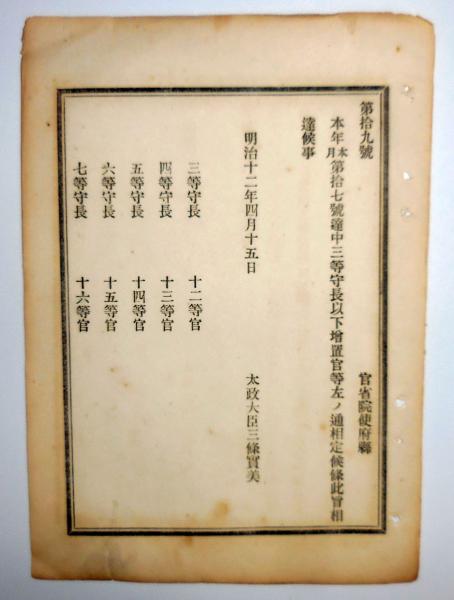 第拾九號 官省院使府縣
本年本月第拾七號達中三等守長以下增置官等左ノ通相定候條此旨相
達候事
明治十二年四月十五日 太政大臣三條實美
三等守長 十二等官
四等守長 十三等官
五等守長 十四等官
六等守長 十五等官
七等守長 十六等官